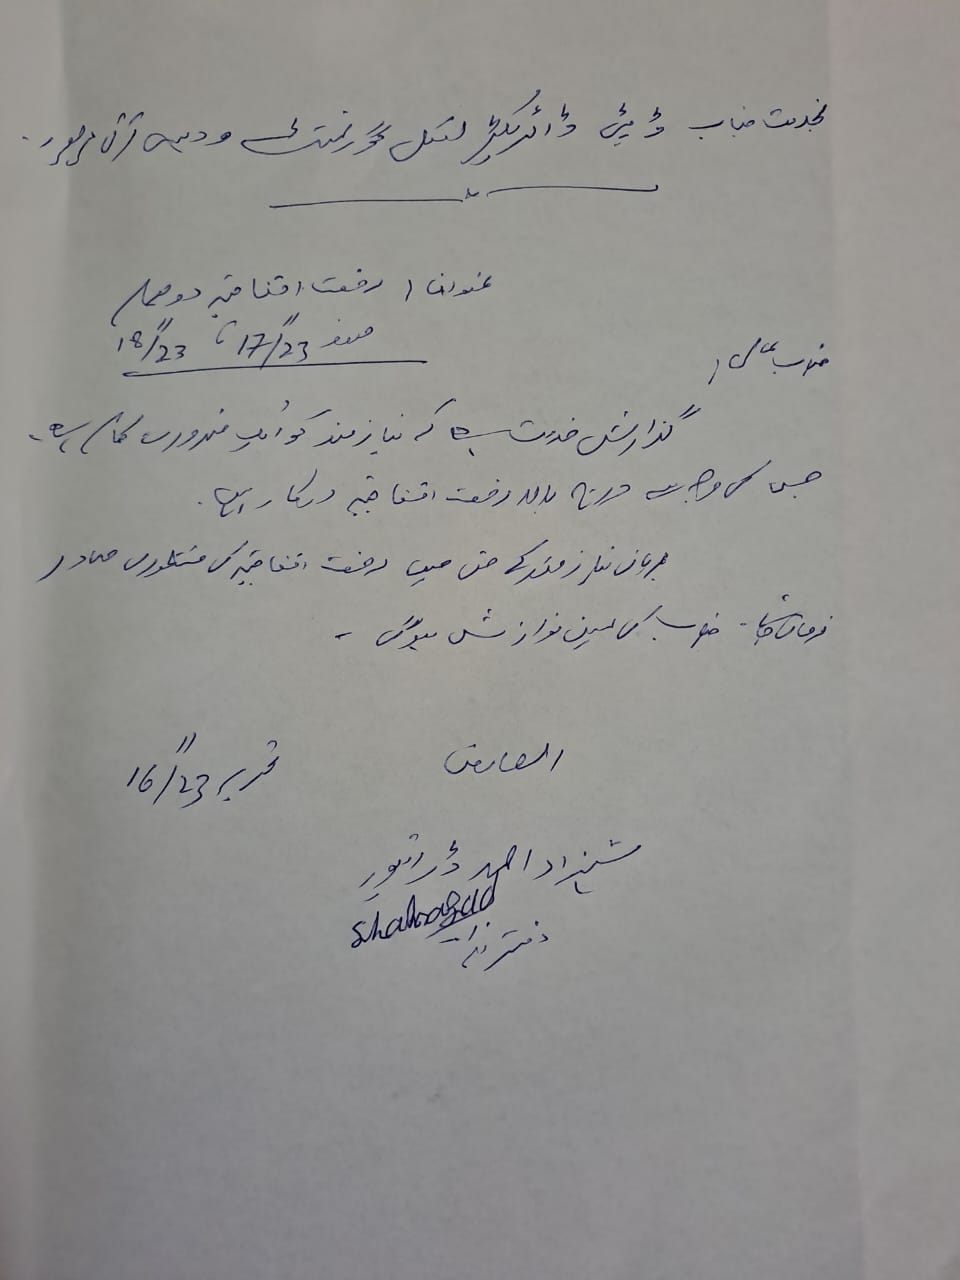 بخدمت جناب ڈپٹی ڈائریکٹر لوکل گورنمنٹ و دیہی ترقی میرپور۔
عنوان: رخصت اتفاقیہ دو یوم
مورخہ 17/11/23 تا 18/11/23
جناب عالی!
گذارش خدمت ہے کہ نیازمند کو ایک ضروری کام ہے۔
جس کی وجہ سے درج بالا رخصت اتفاقیہ درکار ہے۔
مہربانی نیازمند کے حق میں رخصت اتفاقیہ کی منظوری صادر
فرمائی جائے۔ جناب کی عین نوازش ہوگی۔
العارض
تحریر 16/11/23
شہزاد احمد ڈرائیور
Shahzad
دفتر ہذا